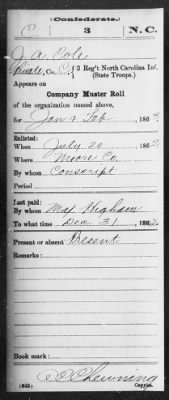 (Confederate.)
C 3 N.C.
J. A. Cole
Private, Co. C, 3 Reg't North Carolina Inf.
(State Troops.)
Appears on
Company Muster Roll
of the organization named above,
for Jan & Feb, 1863.
Enlisted:
When July 20, 186
Where Moore Co
By whom Conscript
Period
Last paid:
By whom Maj Higham
To what time Dec 31, 1862.
Present or absent Present
Remarks:
Book mark:
Chewning
(642) Copyist.